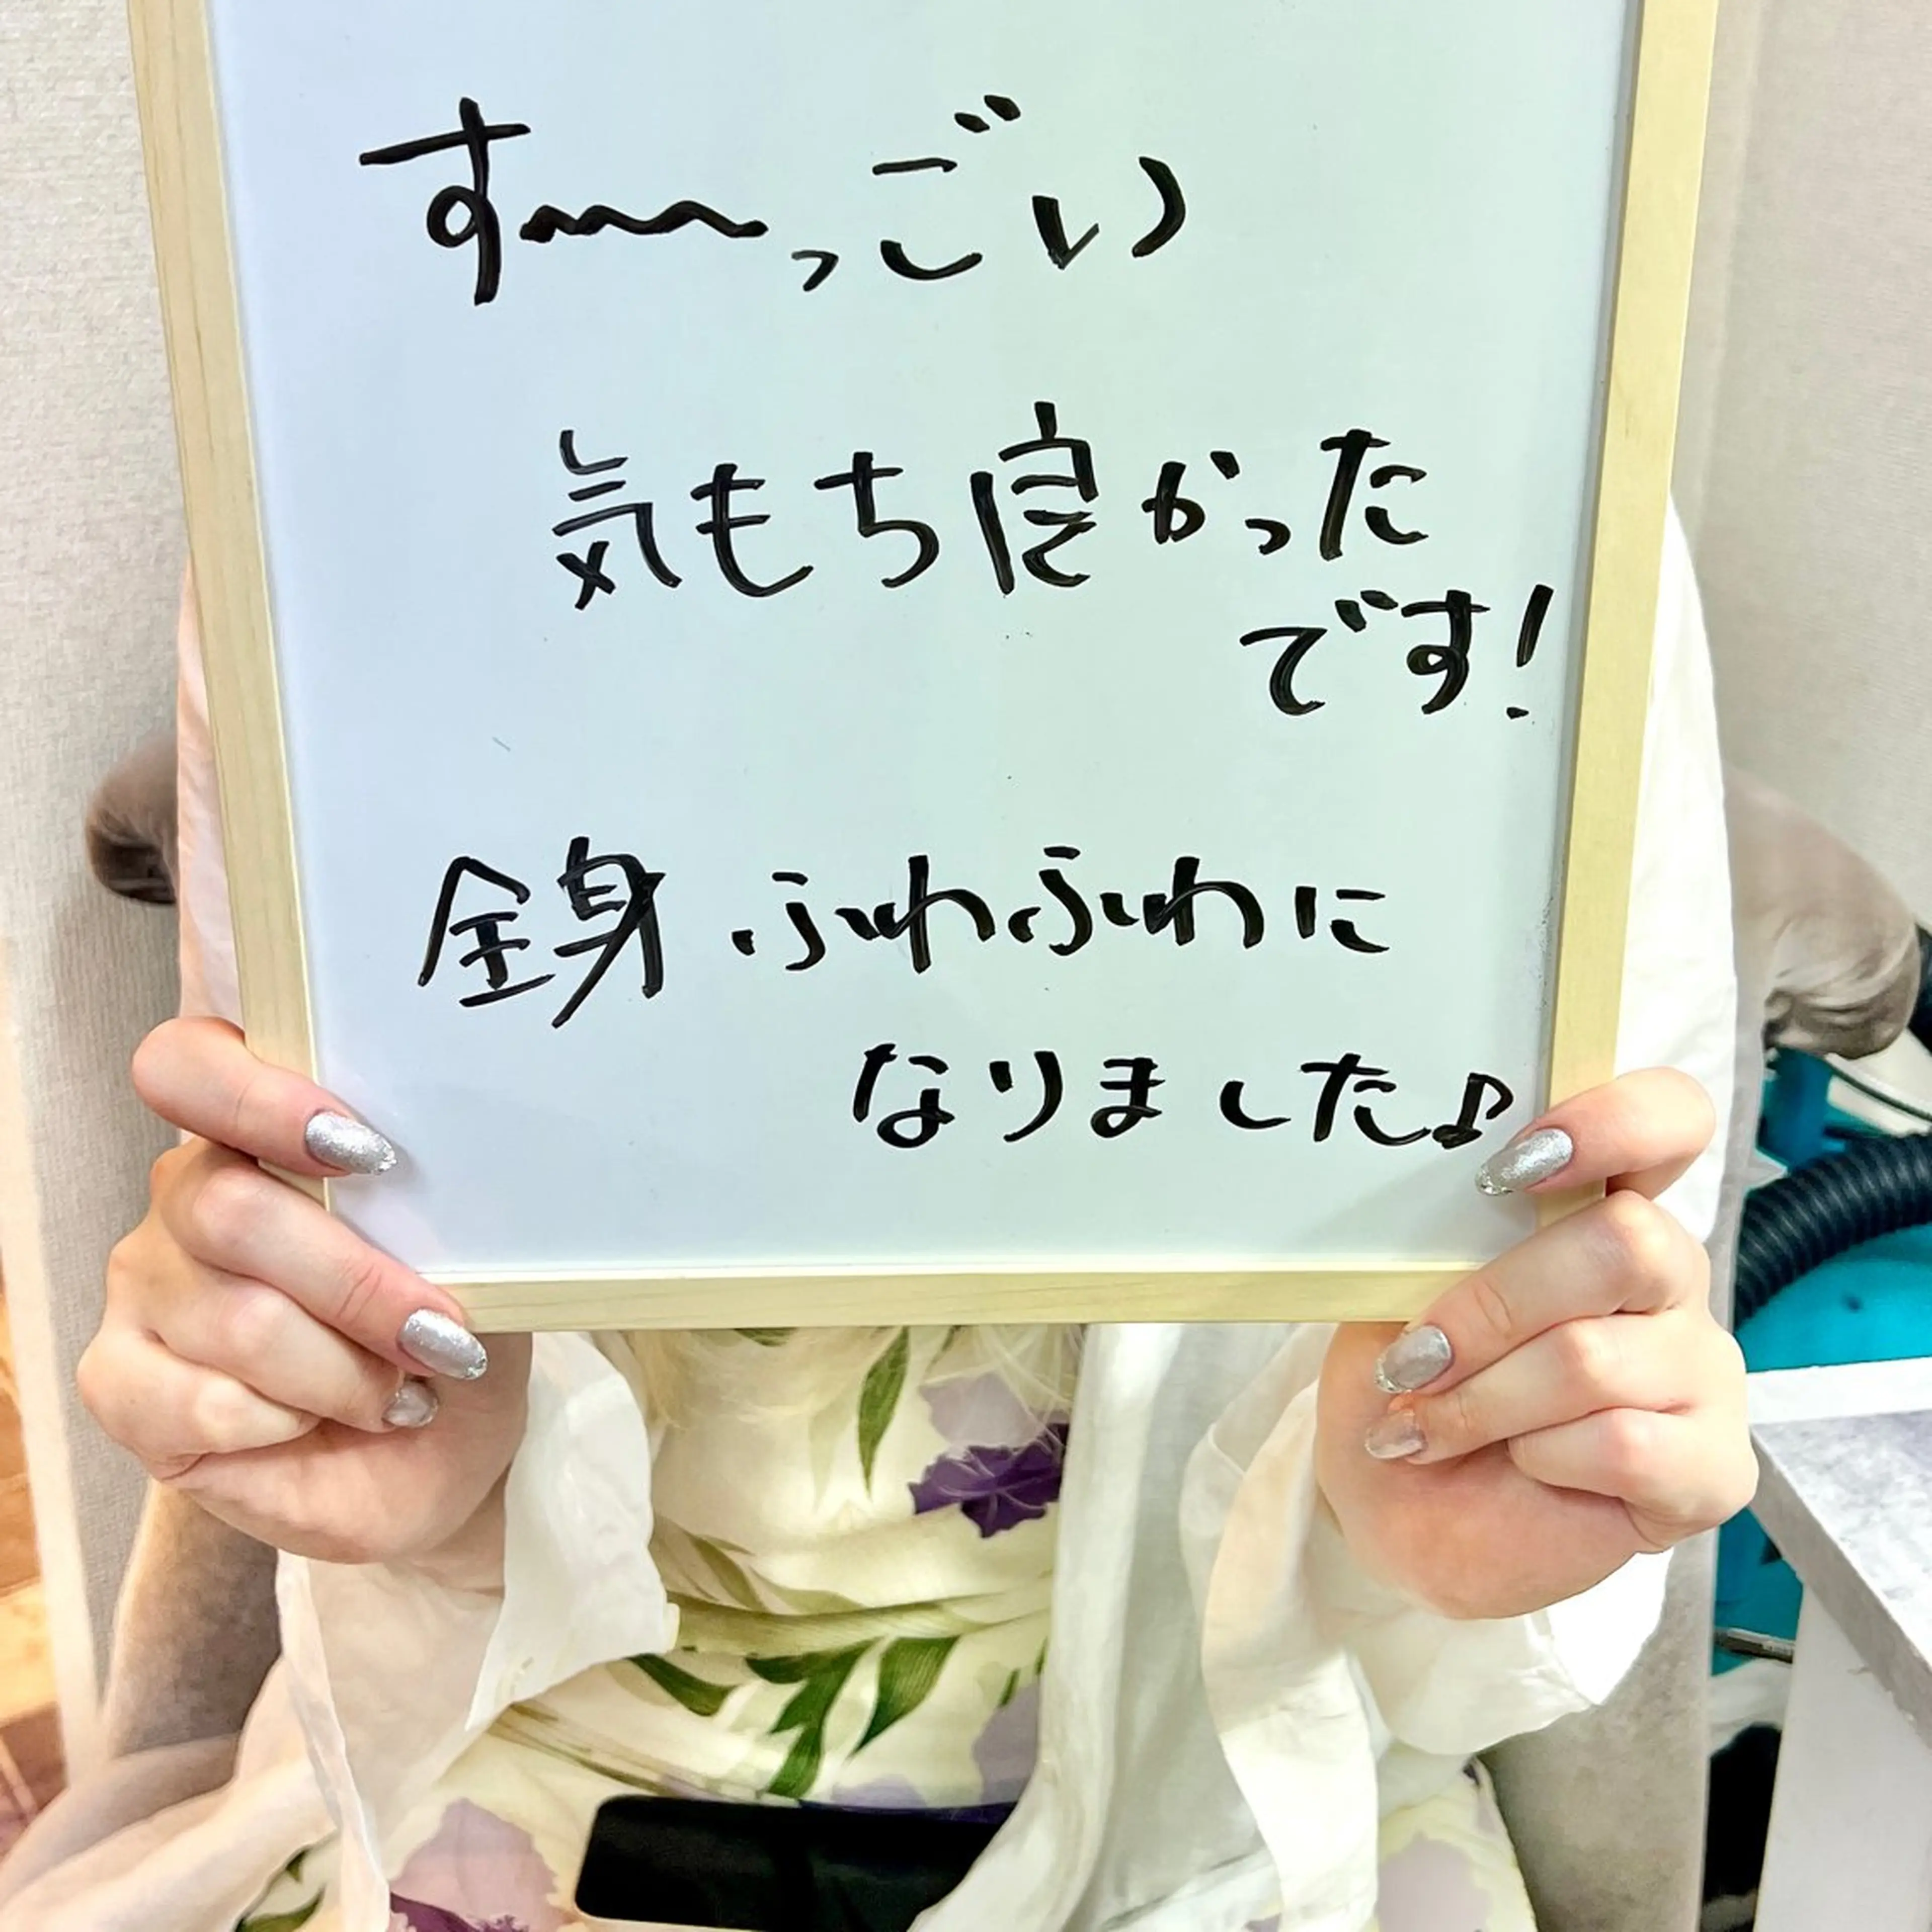 す〜〜っごい
気もち良かった
です!
全身ふわふわに
なりました♪